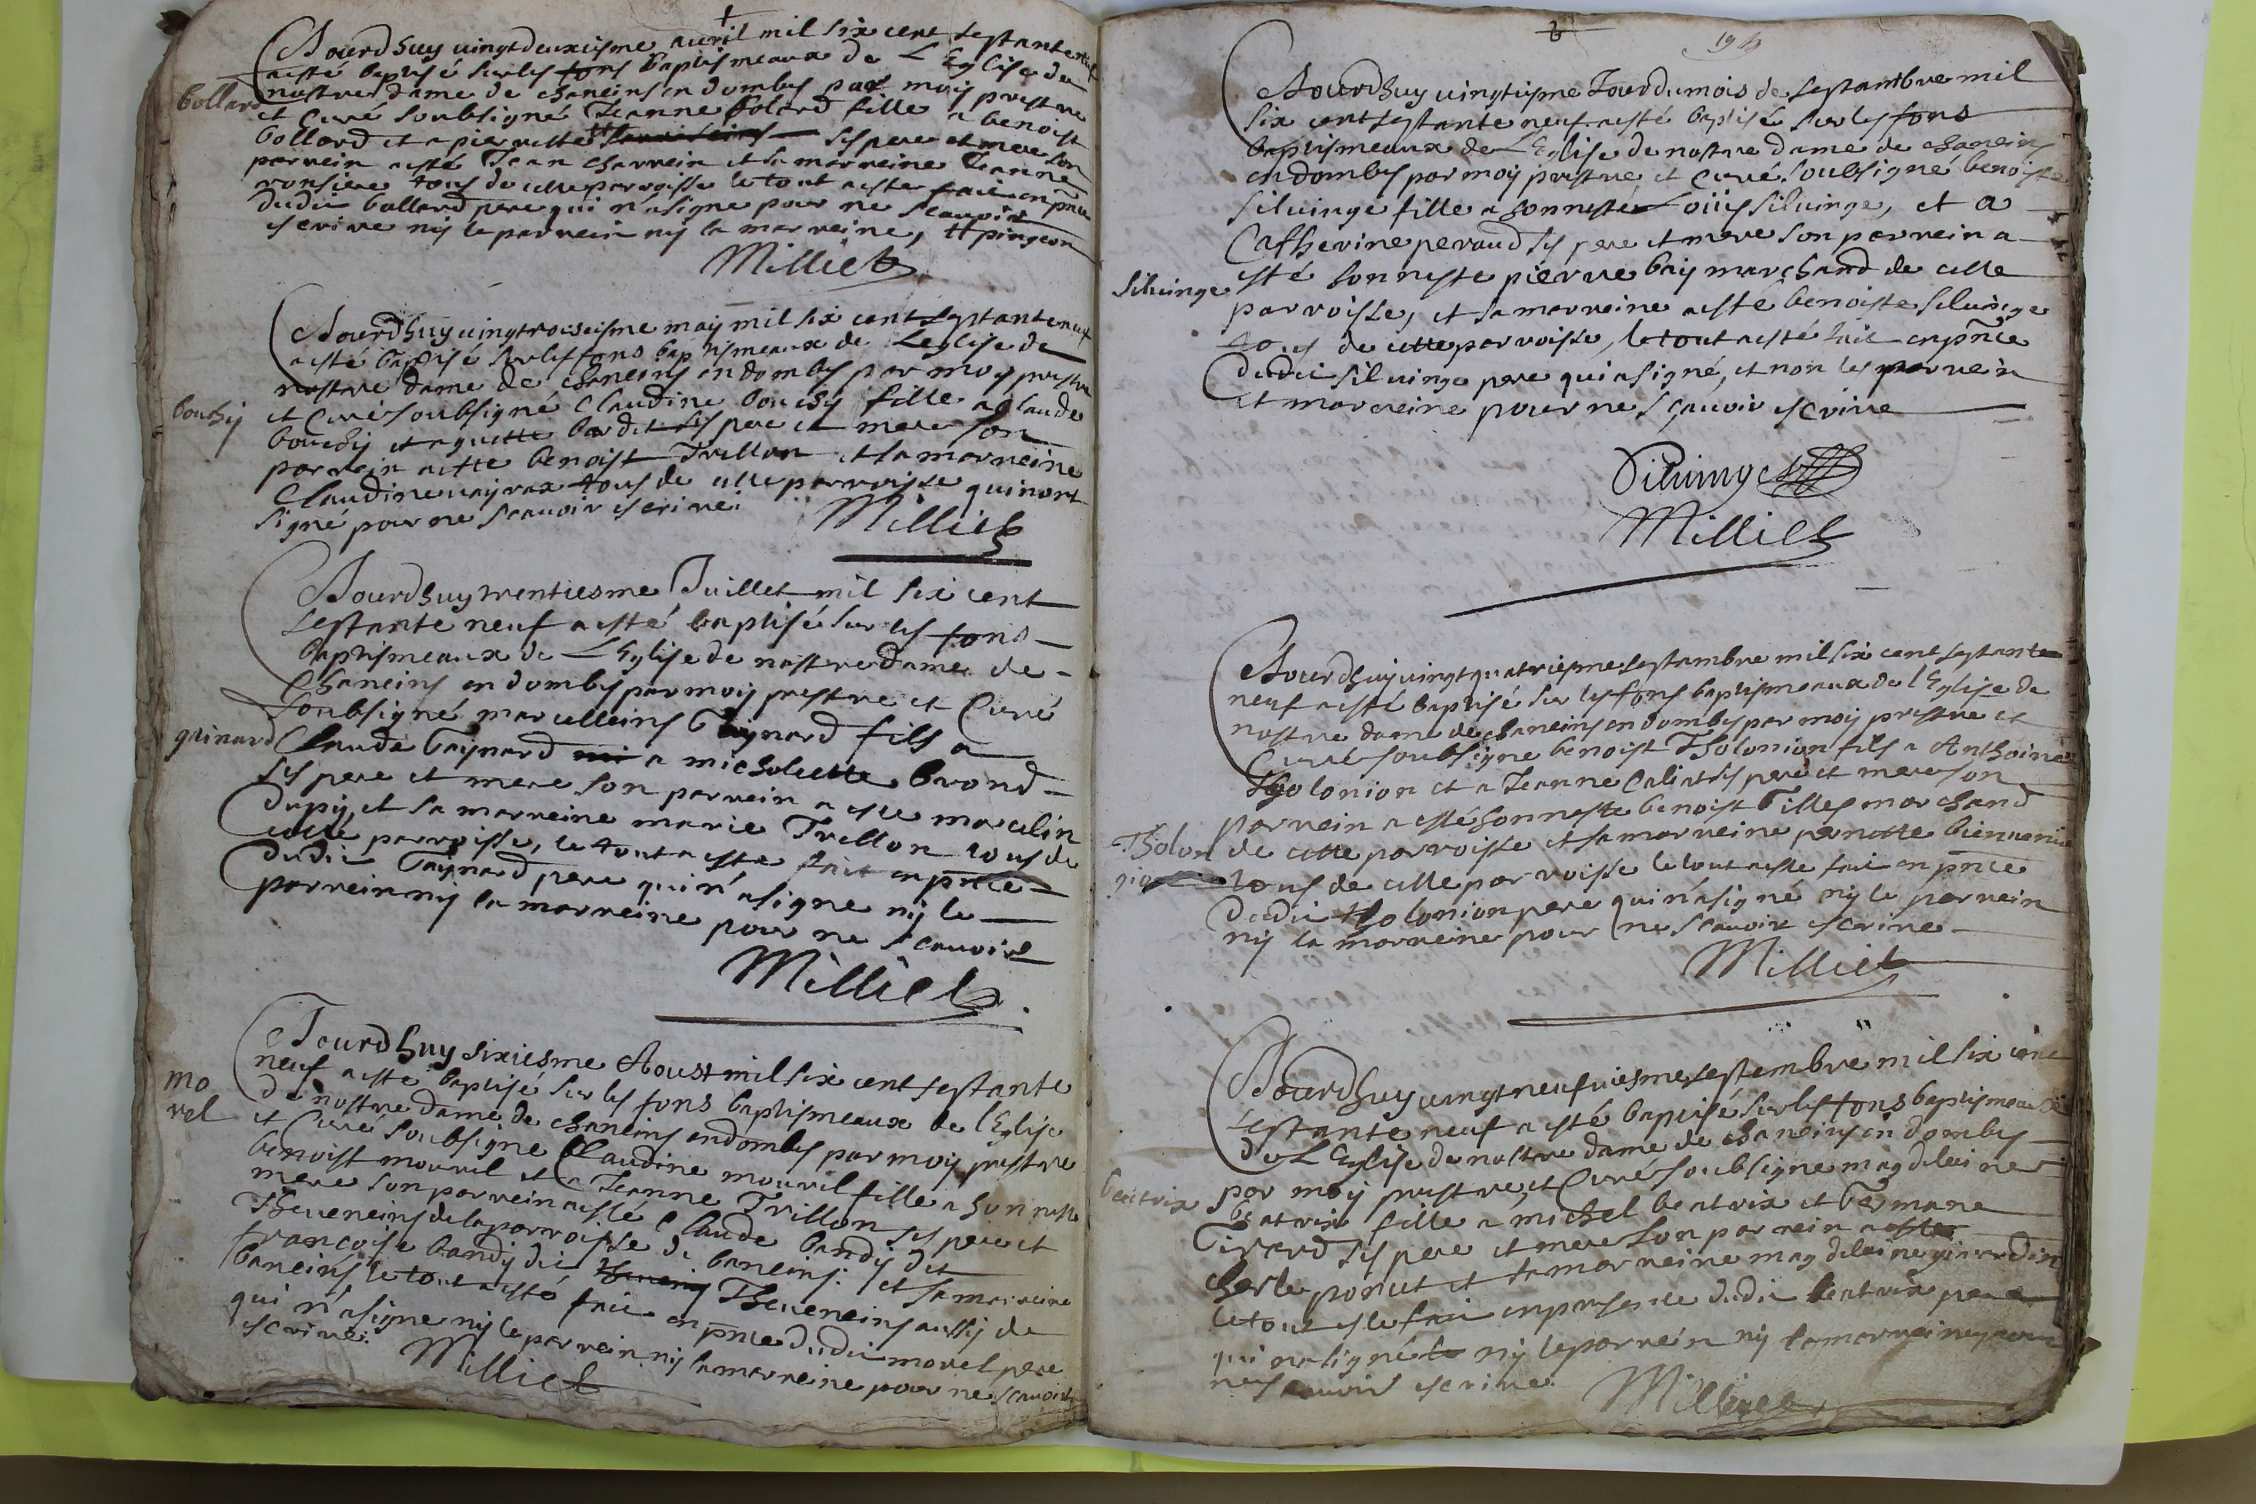 Jourdhuy vingtdeuxiesme auril mil six cent septante neuf
a esté baptisé sur les fons baptismeaux de L'Eglise de
nostre dame de chaneins en dombes par moy prestre
bollard
et Curé soubsigné Jeanne bolard fille a benoist
bollard et a pierrette ses pere et mere son
parrein a esté Jean charrein et sa marreine Jeanne
ronsiere tous de cette parroisse le tout a este fait en pnce
dudit bollard pere qui n'a signe pour ne scauoir
escrire nij le parrein nij la marreine, # pingeon
Milliet
Jourdhuy vingtroiseisme maij mil six cent septante neuf
a esté baptisé sur les fons baptismeaux de Leglise de
nostre dame de chaneins en dombes par moy prestre
bouchij
et Curé soubsigné Claudine bouchij fille a Claude
bouchij et a guette bardet ses pere et mere son
parrein a este benoist Trillon et sa marreine
Claudine tous de cette parroisse qui n'ont
signé pour ne scauoir escrire.
Milliet
Jourdhuy trentiesme Juillet mil six cent
septante neuf a esté baptisé sur les fons
baptismeaux de L'Eglise de nostre dame de
Chaneins en dombes par moij prestre et Curé
soubsigné marcelleins Gaynard fils a
guinard
Claude Gaynard a micholette brond
ses pere et mere son parrein a este marcelin
dupij, et sa marreine marie Trillon tous de
cette parroisse, le tout a este fait en pnce
dudit Gaynard pere qui n'a signe nij le
parrein nij la marreine pour ne scauoir
Milliet
Jourdhuy sixiesme Aoust mil six cent septante
neuf a esté baptisé sur les fons baptismeaux de l'Eglise
morel
de nostre dame de chaneins en dombes par moij prestre
et Curé soubsigne Claudine mouril fille a honneste
benoist mouril et a Jeanne Trillon ses pere et
mere son parrein a esté Claude bandij dit
Theueneins de la parroisse de baneins: et sa marreine
francoise bandij dit Theueneins aussij de
baneins, le tout a esté fait en pnce dudit morel pere
qui n'a signe nij le parrein nij la marreine pour ne scauoir
escrire.
Milliet
Jourdhuy vingtiesme Jour du mois de septambre mil
six cent septante neuf a esté baptisé sur les fons
baptismeaux de L'Eglise de nostre dame de chaneins
en dombes par moij prestre et Curé soubsigné benoiste
siluinge fille a honneste Louijs siluinge, et a
Catherine peraud ses pere et mere son parrein a
siluinge
esté honneste pierre baij marchand de cette
parroisse, et sa marreine a esté benoiste siluinge
tous de cette parroisse, le tout a esté fait en pnce
dudit siluinge pere qui a signé, et non les parrein
et marreine pour ne scauoir escrire
Siluinge
Milliet
Jourdhuij vingtquatriesme septambre mil six cent septante
neuf a esté baptisé sur les fons baptismeaux de l'Eglise de
nostre dame de chaneins en dombes par moij prestre et
Curé soubsigne benoist Tholonion fils a Anthoine
Tholonion et a Jeanne ses pere et mere son
parrein a esté honneste benoist Gilles marchand
Tholon
de cette parroisse et sa marreine pernette
tous de cette parroisse le tout a este fait en pnce
dudit tholonion pere qui n'a signé nij le parrein
nij la marreine pour ne scauoir escrire
Milliet
Jourdhuy vingtneufuiesme septembre mil six cent
septante neuf a esté baptisé sur les fons baptismeaux
de L'Eglise de nostre dame de chaneins en dombes
beatrix
par moij prestre, et Curé soubsigne magdeleine
beatrix fille a michel beatrix et Germane
Girard ses pere et mere son parrein a esté
Charle ponut et sa marreine magdeleine girardin
le tout este fait en presence dudit beatrix pere
qui na signé nij le parrein nij la marreine pour
ne scauoir escrire
Milliet